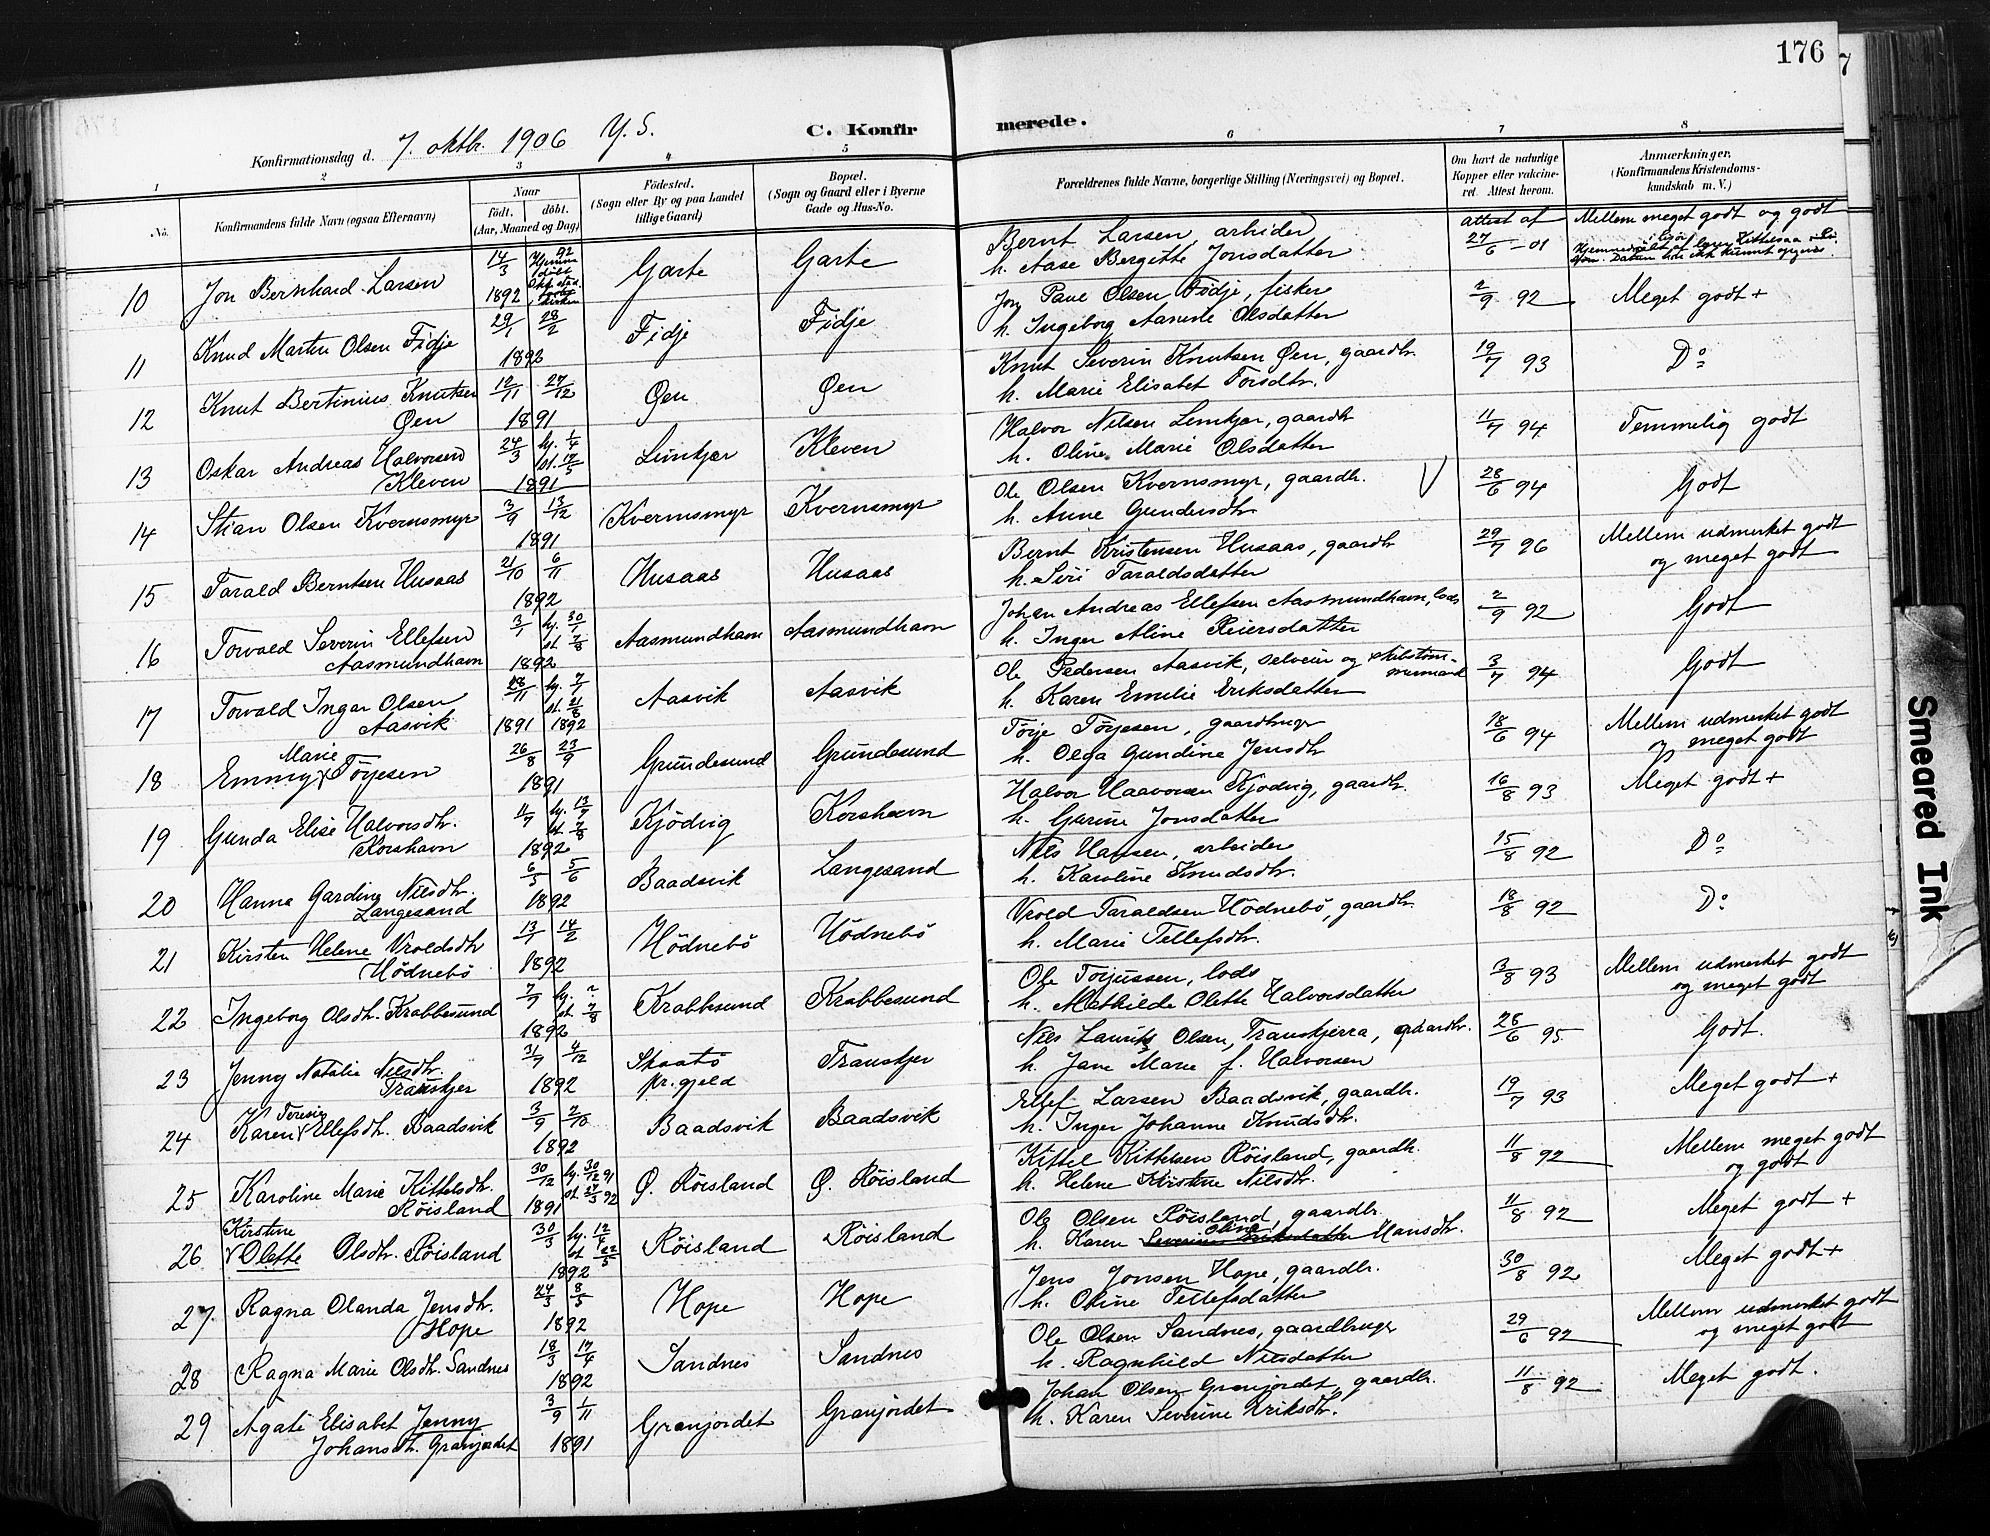 176
7
7. oktb. 1906 Y. S.
C. Konfirmerede.
Konfirmationsdag d.
1 2 3 4 5 6 7 8
No.
Konfirmandens fulde Navn (ogsaa Efternavn)
Naar
födt. döbt.
(Aar, Maaned og Dag)
Födested.
(Sogn eller By og paa Landet
tillige Gaard)
Bopæl.
(Sogn og Gaard eller i Byerne
Gade og Hus-No.
Forældrenes fulde Navne, borgerlige Stilling (Næringsvei) og Bopæl.
Om havt de naturlige
Kopper eller vakcine-
ret. Attest herom.
Anmærkninger,
(Konfirmandens Kristendoms-
kundskab m. V.)
10 Jon Bernhard Larsen 14/3 1892 Garte Garte
Bernt Larsen, arbeider
h. Aase Bergitte Jonsdatter
attest af 27/6 - 01
Mellem meget godt og godt
11 Knud Martin Olsen Fidje 29/1 28/2 1892 Fidje Fidje
Paul Olsen Fidje, fisker
h. Ingeborg Olsdatter
2/9 92 Meget godt +
12 Knut Bertinius Knutsen
Øen 12/11 27/12 1891 Øen Øen
Knut Severin Knutsen Øen, gaardbr.
h. Marie Elisabet Torsdtr.
19/7 93 Do
13 Oskar Andreas Halvorsen
Kleven 24/3 hj. 1/4 st. 17/5 1891 Kleven
Halvor Nilsen gaardbr
h. Oline Marie Olsdatter
11/7 94 Temmelig godt
14 Stian Olsen Kvernsmyr 3/9 13/12 1891 Kvernsmyr Kvernsmyr
Ole Olsen Kvernsmyr, gaardbr. V
h. Anne Gundersdtr
28/6 94 Godt
15 Tarald Berntsen Husaas 21/10 6/11 1892 Husaas Husaas
Bernt Kristensen Husaas, gaardbr
h. Siri Taraldsdatter
29/7 96 Mellem udmerket godt
og meget godt
16 Torvald Severin Ellefsen
Aasmundhavn 3/1 hj. 30/1 st. 7/8 1892 Aasmundhavn Aasmundhavn
Johan Andreas Ellefsen Aasmundhavn, lods
h. Inger Aline Reiersdatter
2/9 92 Godt
17 Torvald Ingar Olsen
Aasvik 28/11 hj. 7/1 st. 21/8 1891 1892 Aasvik Aasvik
Ole Pedersen Aasvik, selveier og skibstøm-
mermand
h. Karen Emilie Eriksdatter
3/7 94 Godt
18 Emmy Marie Törjesen 26/8 23/9 1891 Grundesund Grundesund
Törje Törjesen, gaardbruger
h. Olga Gundine Jensdtr
18/6 94 Mellem udmerket godt
og meget godt
19 Gunda Elise Halvorsdtr.
Korshavn 11/7 hj. 13/7 st. 7/8 1892 Kjödvig Korshavn
Halvor Haavorsen Kjödvig, gaardbr.
h. Gurine Jonsdatter
16/8 93 Meget godt +
20 Hanna Gardine Nilsdtr.
Langesand 6/5 5/6 1892 Baadsvik Langesand
Nils Hansen, arbeider
h. Karoline Knudsdtr.
15/8 92 Do
21 Kirsten Helene Vroldsdtr
Hödnebö 13/1 14/2 1892 Hödnebö Hödnebö
Vrold Taraldsen Hödnebö, gaardbr.
h. Marie Tellefsdtr.
18/8 92 Do
22 Ingeborg Olsdtr. Krabbesund 7/7 1892 Krabbesund Krabbesund
Ole Torjussen, lods
h. Mathilde Olette Halvorsdatter
3/8 93 Mellem udmerket godt
og meget godt
23 Jenny Natalie Nilsdtr.
Transkjer 31/7 4/12 1892 Skaatö
pr.gjeld Transkjer
Nils Laurits Olsen, gaardbr.
h. Jane Marie f. Halvorsen
28/6 95. Godt.
24 Karen Teresie Ellefsdtr. Baadsvik 3/9 2/10 1892 Baadsvik Baadsvik
Ellef Larsen Baadsvik, gaardbr.
h. Inger Johanne Knudsdtr.
19/7 93 Meget godt +
25 Karoline Marie Kittelsdtr.
Röisland 30/12 hj. 30/12 91 st. 27/3 92 1891 Ø. Röisland Ø. Röisland
Kittel Kittelsen Röisland, gaardbr.
h. Helene Kirstine Nilsdtr.
11/8 92 Mellem meget godt
og godt
26 Kirstine
Olette Olsdtr. Röisland 30/3 hj. 12/4 st. 22/5 1892 Röisland Röisland
Ole Olsen Röisland, gaardbr.
h. Karen Severine Eriksdatter Oline Hansdtr.
11/8 92 Meget godt +
27 Ragna Olanda Jensdtr.
Hope 24/3 8/5 1892 Hope Hope
Jens Jonsen Hope, gaardbr.
h. Oline Tellefsdatter
30/8 92 Meget godt +
28 Ragna Marie Olsdtr. Sandnes 18/3 17/4 1892 Sandnes Sandnes
Ole Olsen Sandnes, gaardbruger
h. Ragnhild Nilsdatter
29/6 92 Mellem udmerket godt
og meget godt
29 Agate Elisabet Jenny
Johansdtr. Granjordet 3/9 1/11 1891 Granjordet Granjordet
Johan Olsen Granjordet, gaardbr.
h. Karen Severine Eriksdtr.
11/8 92 Meget godt.
Smeared Ink